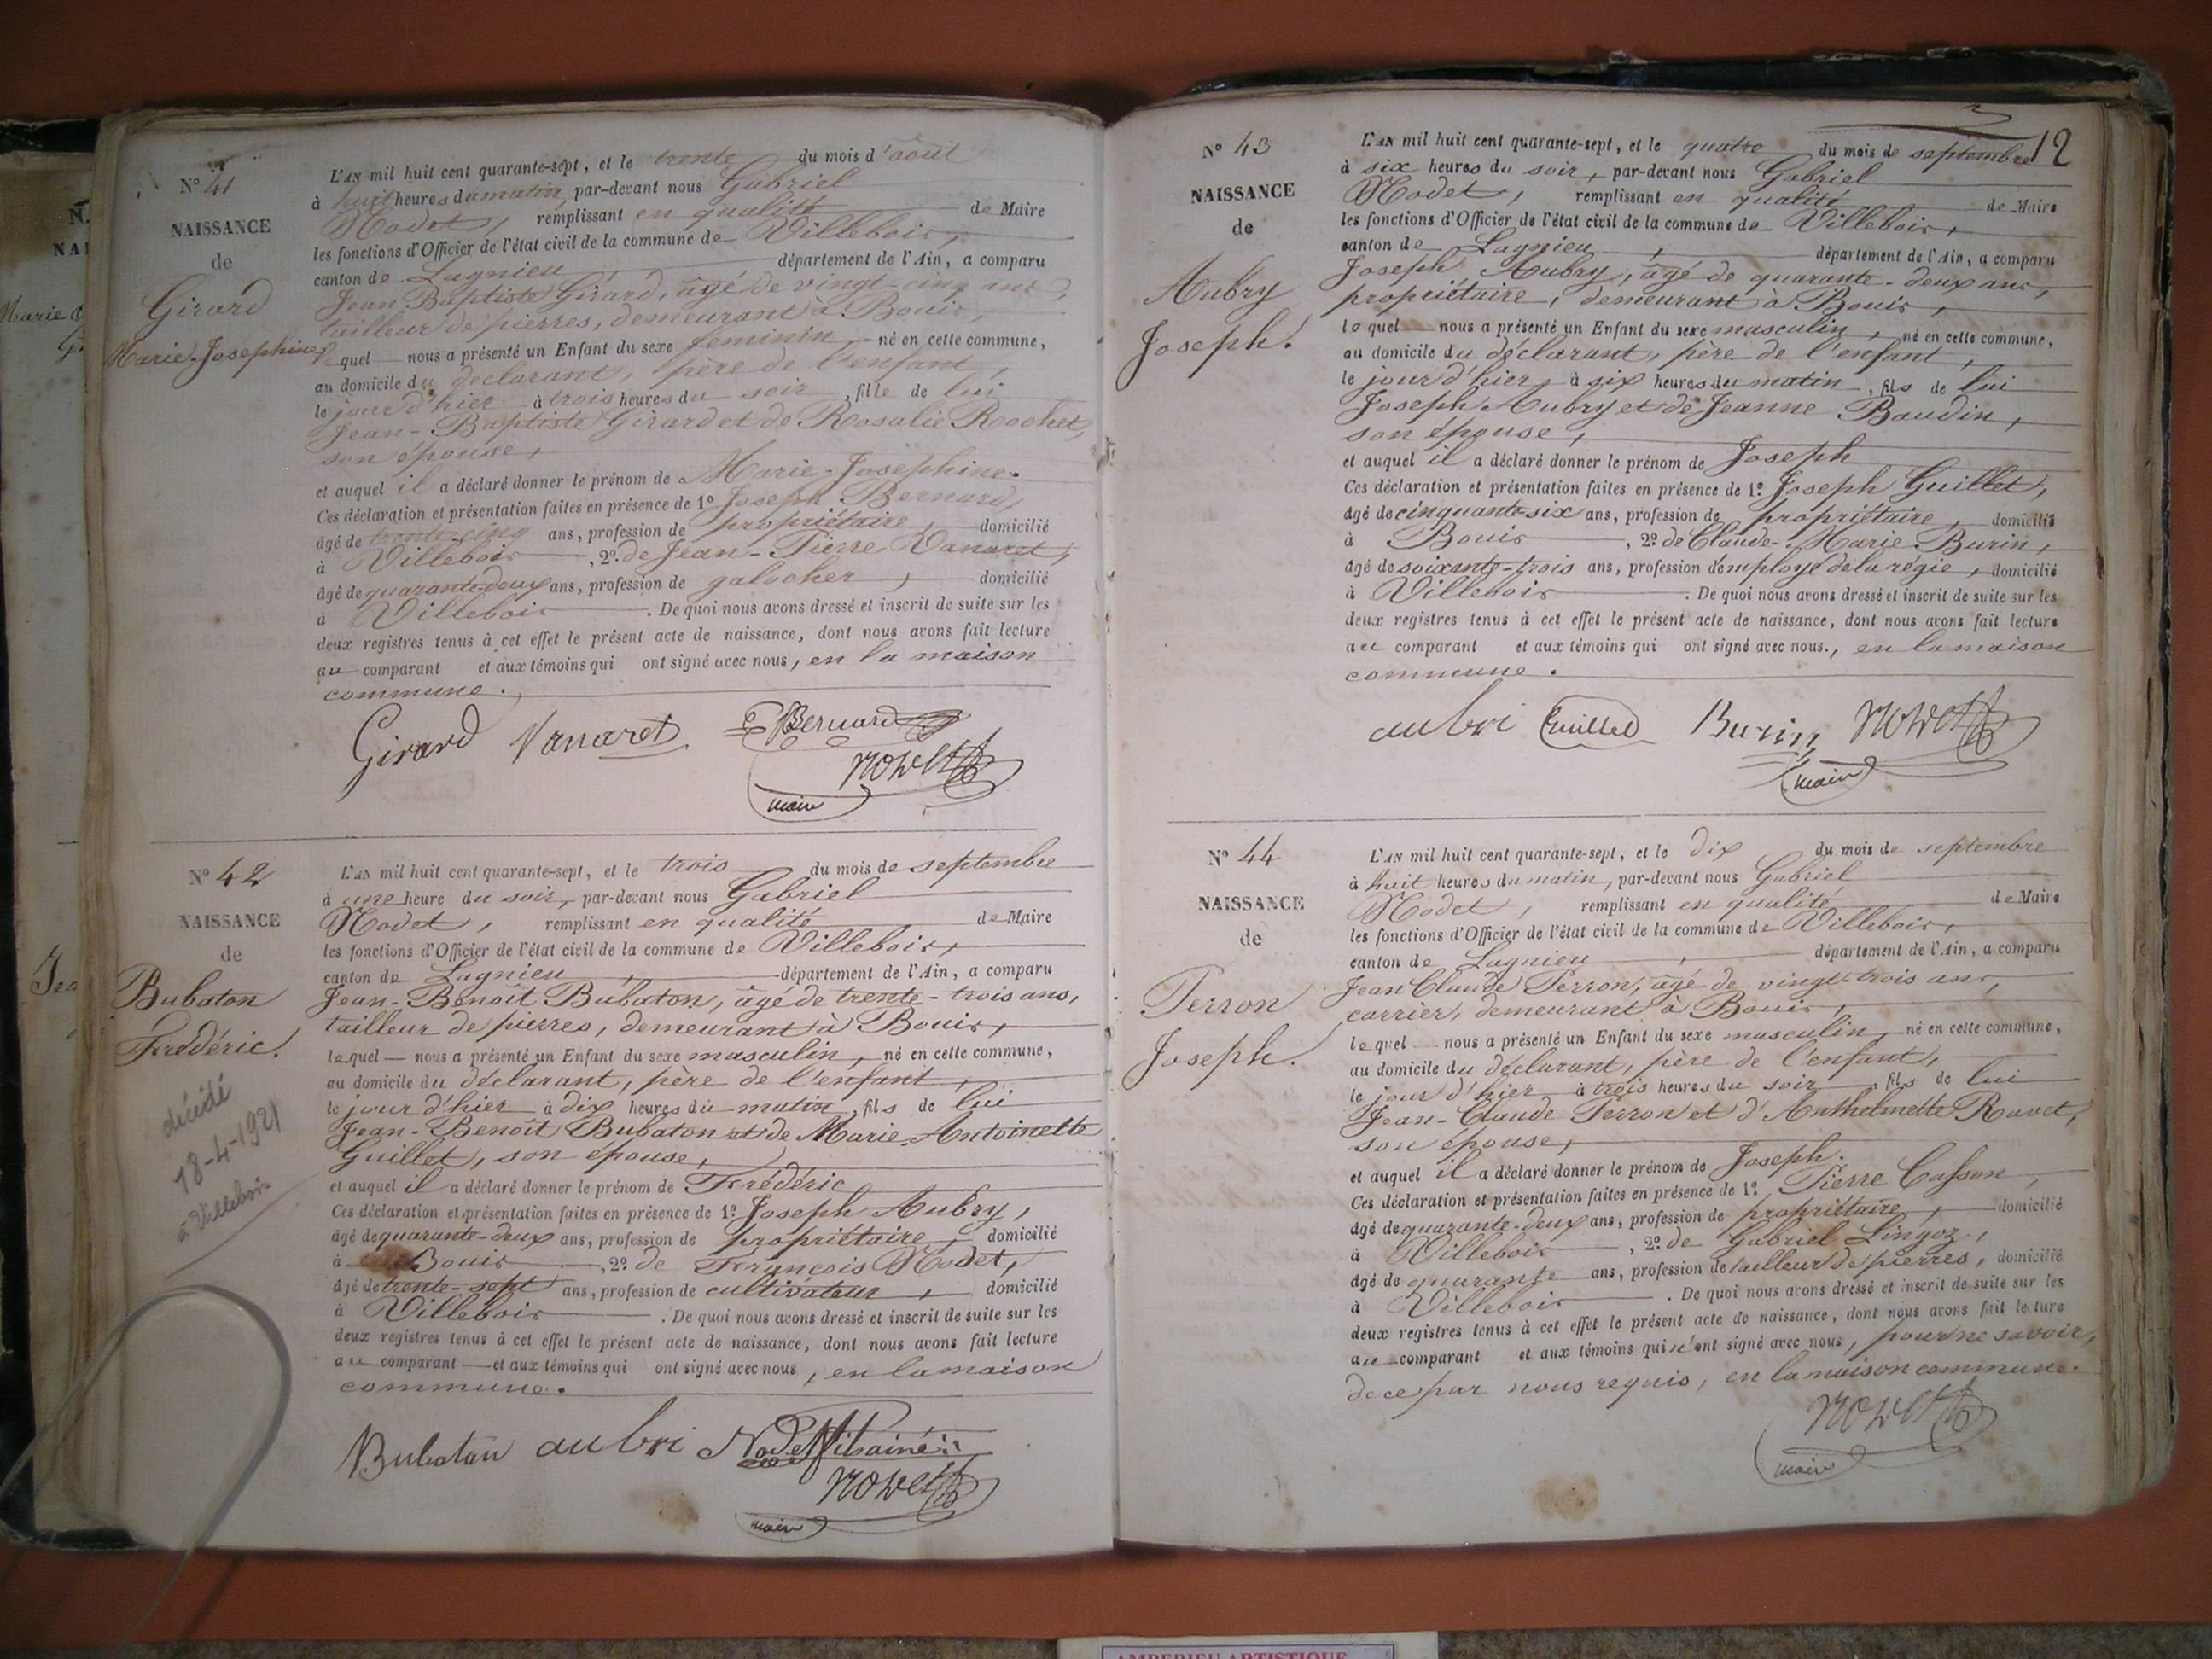 N° 41
NAISSANCE
de
Girard
Marie-Josephine
L'AN mil huit cent quarante-sept, et le trente du mois d'août
à huit heures du matin, par-devant nous Gabriel
Nodet, remplissant en qualité de Maire
les fonctions d'Officier de l'état civil de la commune de Villebois,
canton de Lagnieu, département de l'Ain, a comparu
Jean Baptiste Girard, âgé de vingt-cinq ans,
tailleur de pierres, demeurant à Bouis,
lequel nous a présenté un Enfant du sexe feminin, né en cette commune,
au domicile du declarant, père de l'enfant,
le jour d'hier à trois heures du soir, fille de lui
Jean-Baptiste Girard et de Rosalie Rochet,
son épouse,
et auquel il a déclaré donner le prénom de Marie-Josephine.
Ces déclaration et présentation faites en présence de 1° Joseph Bernard,
âgé de trente-cinq ans, profession de propriétaire, domicilié
à Villebois, 2° de Jean-Pierre Vanaret,
âgé de quarante-deux ans, profession de galocher, domicilié
à Villebois. De quoi nous avons dressé et inscrit de suite sur les
deux registres tenus à cet effet le présent acte de naissance, dont nous avons fait lecture
au comparant et aux témoins qui ont signé avec nous, en la maison
commune.
Girard Vanaret Bernard
Nodet
maire
N° 42
NAISSANCE
de
Bubaton
Frédéric.
décédé
18-4-1921
à Villebois
L'AN mil huit cent quarante-sept, et le trois du mois de septembre
à une heure du soir, par-devant nous Gabriel
Nodet, remplissant en qualité de Maire
les fonctions d'Officier de l'état civil de la commune de Villebois,
canton de Lagnieu, département de l'Ain, a comparu
Jean-Benoît Bubaton, âgé de trente-trois ans,
tailleur de pierres, demeurant à Bouis,
lequel nous a présenté un Enfant du sexe masculin, né en cette commune,
au domicile du déclarant, père de l'enfant,
le jour d'hier à dix heures du matin, fils de lui
Jean-Benoît Bubaton et de Marie-Antoinette
Guillet, son épouse,
et auquel il a déclaré donner le prénom de Frédéric
Ces déclaration et présentation faites en présence de 1° Joseph Aubry,
âgé de quarante-deux ans, profession de propriétaire, domicilié
à Bouis, 2° de François Nodet,
âgé de trente-sept ans, profession de cultivateur, domicilié
à Villebois. De quoi nous avons dressé et inscrit de suite sur les
deux registres tenus à cet effet le présent acte de naissance, dont nous avons fait lecture
au comparant et aux témoins qui ont signé avec nous, en la maison
commune.
Bubaton aubri Nodet
Nodet
maire
12
N° 43
NAISSANCE
de
Aubry
Joseph.
L'AN mil huit cent quarante-sept, et le quatre du mois de septembre
à six heures du soir, par-devant nous Gabriel
Nodet, remplissant en qualité de Maire
les fonctions d'Officier de l'état civil de la commune de Villebois,
canton de Lagnieu, département de l'Ain, a comparu
Joseph Aubry, âgé de quarante-deux ans,
propriétaire, demeurant à Bouis,
lequel nous a présenté un Enfant du sexe masculin, né en cette commune,
au domicile du déclarant, père de l'enfant,
le jour d'hier, à six heures du matin, fils de lui
Joseph Aubry et de Jeanne Baudin,
son épouse,
et auquel il a déclaré donner le prénom de Joseph
Ces déclaration et présentation faites en présence de 1° Joseph Guillet,
âgé de cinquante-six ans, profession de propriétaire, domicilié
à Bouis, 2° de Claude-Marie Burin,
âgé de soixante-trois ans, profession d'employé de la régie, domicilié
à Villebois. De quoi nous avons dressé et inscrit de suite sur les
deux registres tenus à cet effet le présent acte de naissance, dont nous avons fait lecture
au comparant et aux témoins qui ont signé avec nous., en la maison
commune.
aubri Guillet Burin Nodet
maire
N° 44
NAISSANCE
de
Perron
Joseph.
L'AN mil huit cent quarante-sept, et le dix du mois de septembre
à huit heures du matin, par-devant nous Gabriel
Nodet, remplissant en qualité de Maire
les fonctions d'Officier de l'état civil de la commune de Villebois,
canton de Lagnieu, département de l'Ain, a comparu
Jean Claude Perron, âgé de vingt-trois ans,
carrier, demeurant à Bouis,
lequel nous a présenté un Enfant du sexe masculin, né en cette commune,
au domicile du déclarant, père de l'enfant,
le jour d'hier à trois heures du soir, fils de lui
Jean-Claude Perron et d'Anthelmette Ravet,
son épouse,
et auquel il a déclaré donner le prénom de Joseph.
Ces déclaration et présentation faites en présence de 1° Pierre Casson,
âgé de quarante-deux ans, profession de propriétaire, domicilié
à Villebois, 2° de Gabriel Lingoz,
âgé de quarante ans, profession de tailleur de pierres, domicilié
à Villebois. De quoi nous avons dressé et inscrit de suite sur les
deux registres tenus à cet effet le présent acte de naissance, dont nous avons fait lecture
au comparant et aux témoins qui n'ont signé avec nous, pour ne savoir,
de ce par nous requis, en la maison commune.
Nodet
maire
AMBERIEU ARTISTIQUE